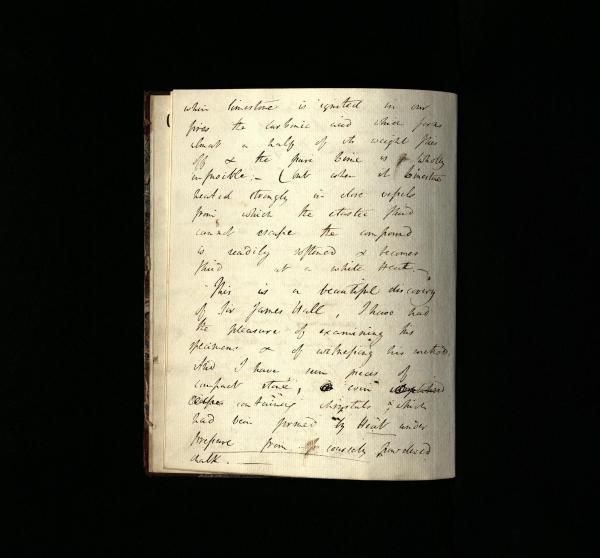 when limestone is ignited in our
fires the carbonic acid which forms
almost a half of its weight flies
off & the pure lime is wholly
infusible. – (but when it limestone
heated strongly in close vessels
from which the elastic fluid
cannot escape the compound
is readily softened & becomes
fluid at a white heat. –
– This is a beautiful discovery
of Sir James Hall, I have had
the pleasure of examining his
specimens & of witnessing his methods,
And I have seen pieces of
compact stone, even
containing chrystals which
had been formed by Heat under
Pressure from coarsely powdered
chalk. –